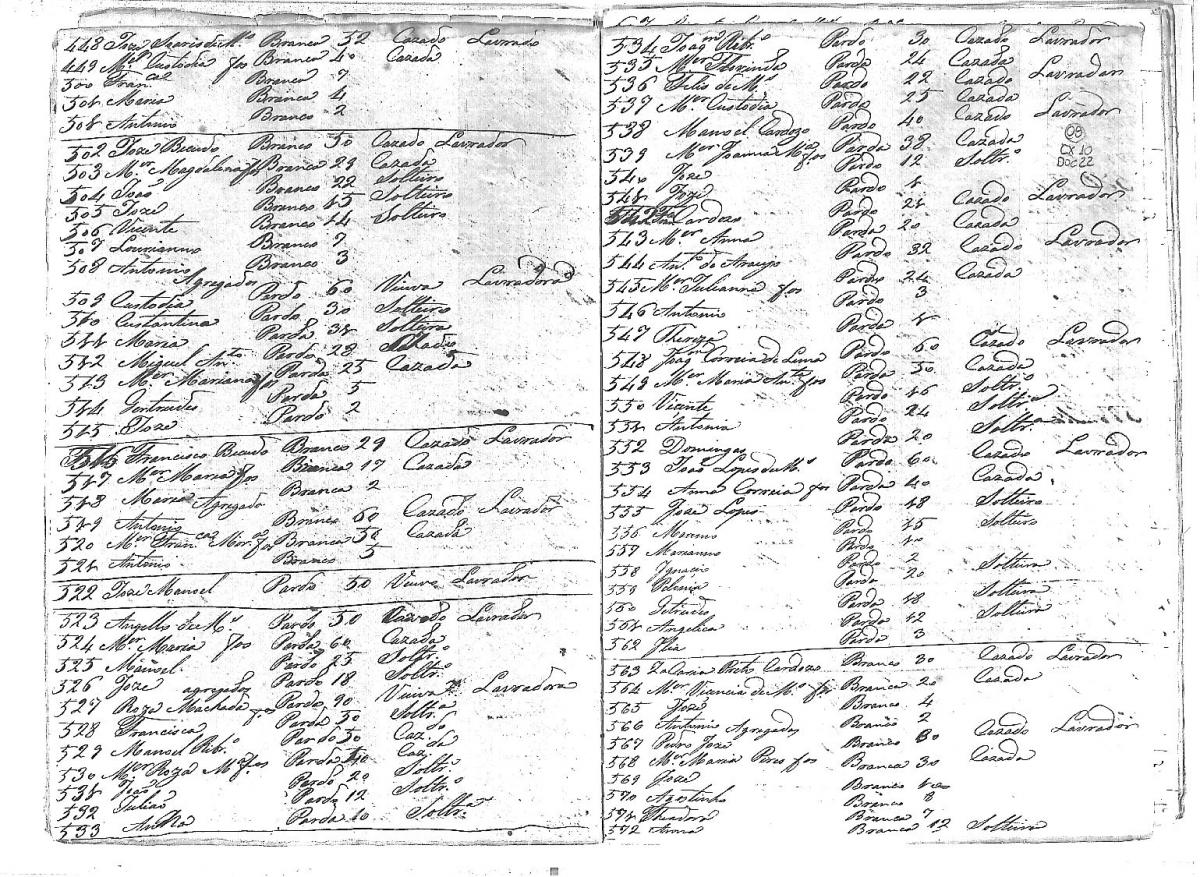 448 Joze Branca 32 Cazado Lavrado
449 Mer Custodia fos Branca 40 Cazada
500 Fran.cca Branca 7
501 Maria Branca 4
501 Antonio Branco 2
502 Joze Branco 50 Cazado Lavrador
503 Mer Magdalena fos Branca 29 Cazada
504 João Branco 22 Solteiro
505 Joze Branco 15 Solteiro
506 Vicente Branco 14 Solteiro
507 Lourianno Branco 7
508 Antonio Branco 3
Agregados
509 Custodia Parda 60 Viuva Lavradora
510 Custantina Parda 30 Solteira
511 Maria Parda 31 Solteira
512 Miguel Anto Pardo 28 Cazado
513 Mer Mariana fos Parda 25 Cazada
514 Gertrudes Parda 5
515 Joze Pardo 2
516 Francisco Branco 29 Cazado Lavrador
517 Mer Maria fos Branca 17 Cazada
518 Maria Branca 2
Agregado
519 Antonio Branco 60 Cazado Lavrador
520 Mer Fran.ca fos Branca 50 Cazada
521 Antonio Branco 5
522 Joze Manoel Pardo 50 Viuvo Lavrador
523 Angello de Mo Pardo 50 Cazado Lavrador
524 Mer Maria fos Parda 60 Cazada
525 Manoel Pardo 25 Soltro
526 Joze Pardo 18 Soltro
agregados
527 Roza Machada Parda 90 Viuva Lavradora
528 Francisca Parda 50 Soltra
529 Manoel Ribro Pardo 50 Caz.do
530 Mer Roza Ma fos Parda 40 Caz.da
531 João Pardo 20 Soltro
532 Julião Pardo 12 Soltro
533 Anna Parda 10 Soltra
534 Joaqm Ribro Pardo 30 Cazado Lavrador
535 Mer Florinda Parda 24 Cazada
536 Felis de Mo Pardo 22 Cazado Lavrador
537 Mer Custodia Parda 25 Cazada
538 Manoel Cardozo Pardo 40 Cazado Lavrador
539 Mer Joanna Ma fos Parda 38 Cazada
540 Joze Pardo 12 Soltro
541 Joze Pardo 1
542 Cardozo Pardo 21 Cazado Lavrador
543 Mer Anna Parda 20 Cazada
544 Anto de Araujo Pardo 32 Cazado Lavrador
545 Mer Julianna fos Parda 24 Cazada
546 Antonio Pardo 3
547 Thereza Parda 1
548 Joaqm Correia de Lima Pardo 60 Cazado Lavrador
549 Mer Maria Anta fos Parda 50 Cazada
550 Vicente Pardo 16 Soltro
551 Antonia Parda 24 Soltra
552 Domingas Parda 20 Soltra
553 João Lopes de Mo Pardo 60 Cazado Lavrador
554 Anna Correia fos Parda 40 Cazada
555 Joze Lopes Pardo 18 Solteiro
556 Pardo 15 Solteiro
557 Marianno Pardo 10
558 Ignacio Pardo 2
559 Parda 20 Solteira
560 Parda 18 Solteira
561 Angelica Parda 12 Solteira
562 Parda 3
563 Zacaria Preto Cardozo Branco 30 Cazado Lavrador
564 Mer Vicencia de Mo fos Branca 20 Cazada
565 Joze Branco 4
566 Antonio Branco 2
Agregados
567 Pedro Joze Branco 30 Cazado Lavrador
568 Mer Maria Pires fos Branca 30 Cazada
569 Joze Branco 10
570 Agostinho Branco 8
571 Theodora Branca 7
572 Anna Branca 12 Solteira
09
CX 10
DOC 22